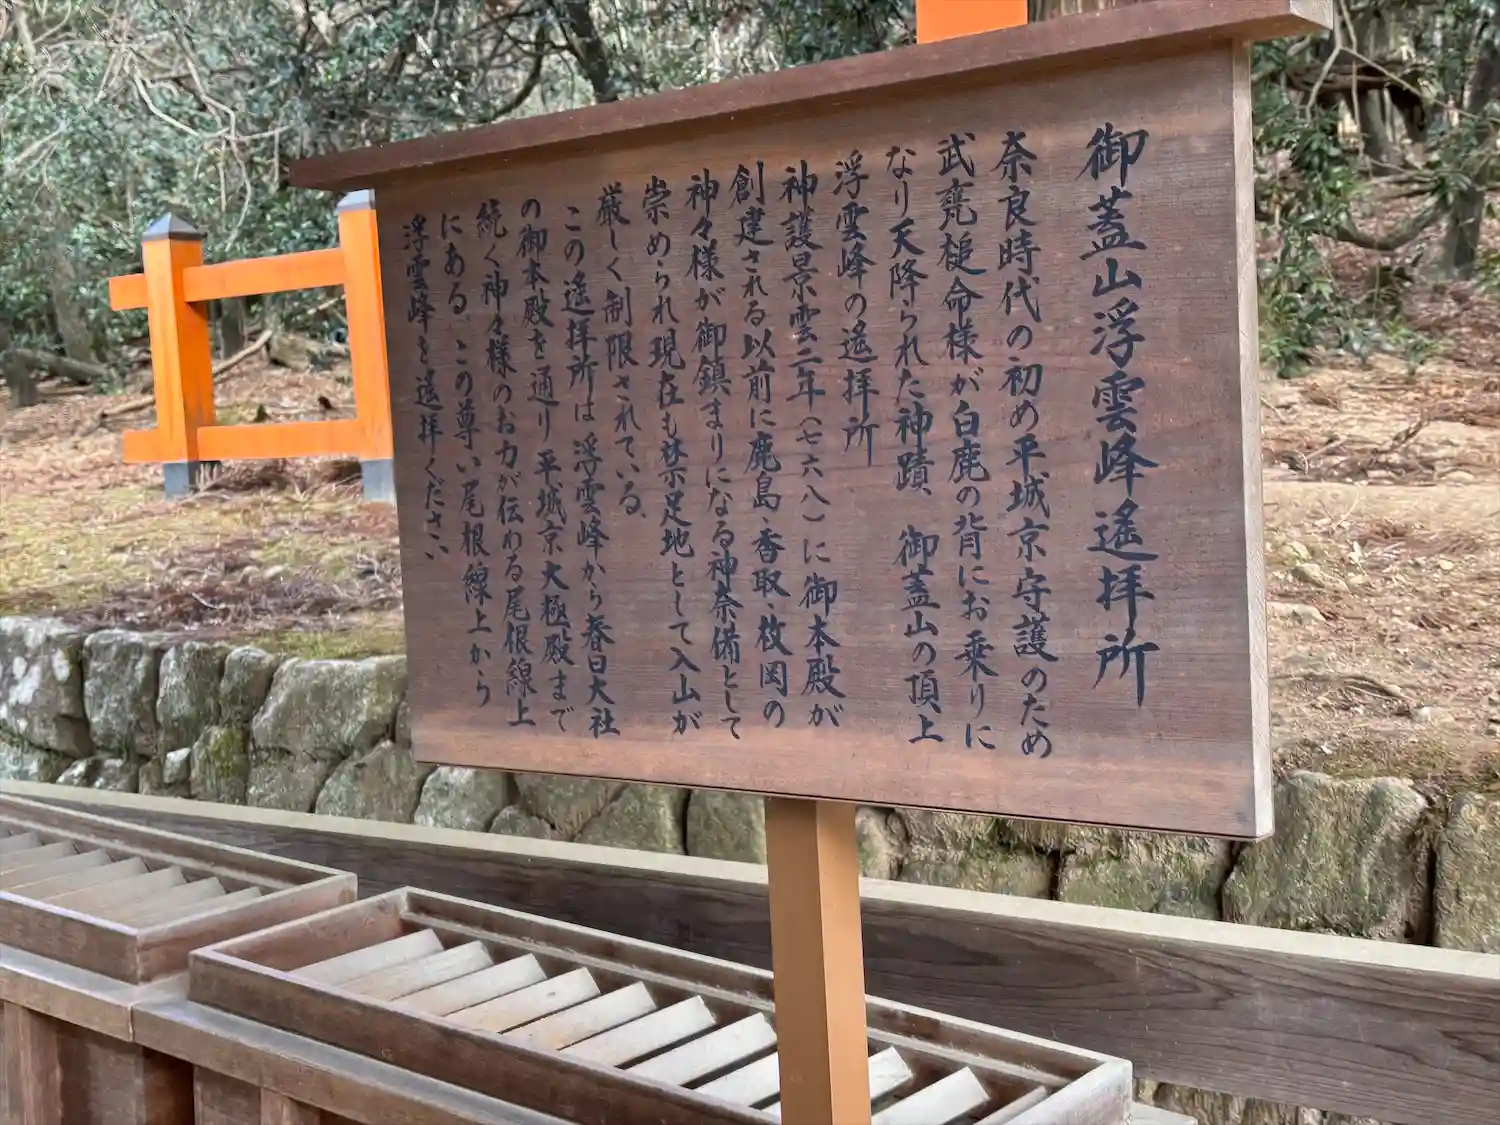 御蓋山浮雲峰遙拝所
奈良時代の初め平城京守護のため
武甕槌命様が白鹿の背にお乗りに
なり天降られた神蹟、御蓋山の頂上
浮雲峰の遙拝所
神護景雲二年（七六八）に御本殿が
創建される以前に鹿島・香取・枚岡の
神々様が御鎮まりになる神奈備として
崇められ現在も禁足地として入山が
厳しく制限されている。
この遙拝所は浮雲峰から春日大社
の御本殿を通り平城京大極殿まで
続く神々様のお力が伝わる尾根線上
にある この尊い尾根線上から
浮雲峰を遙拝ください